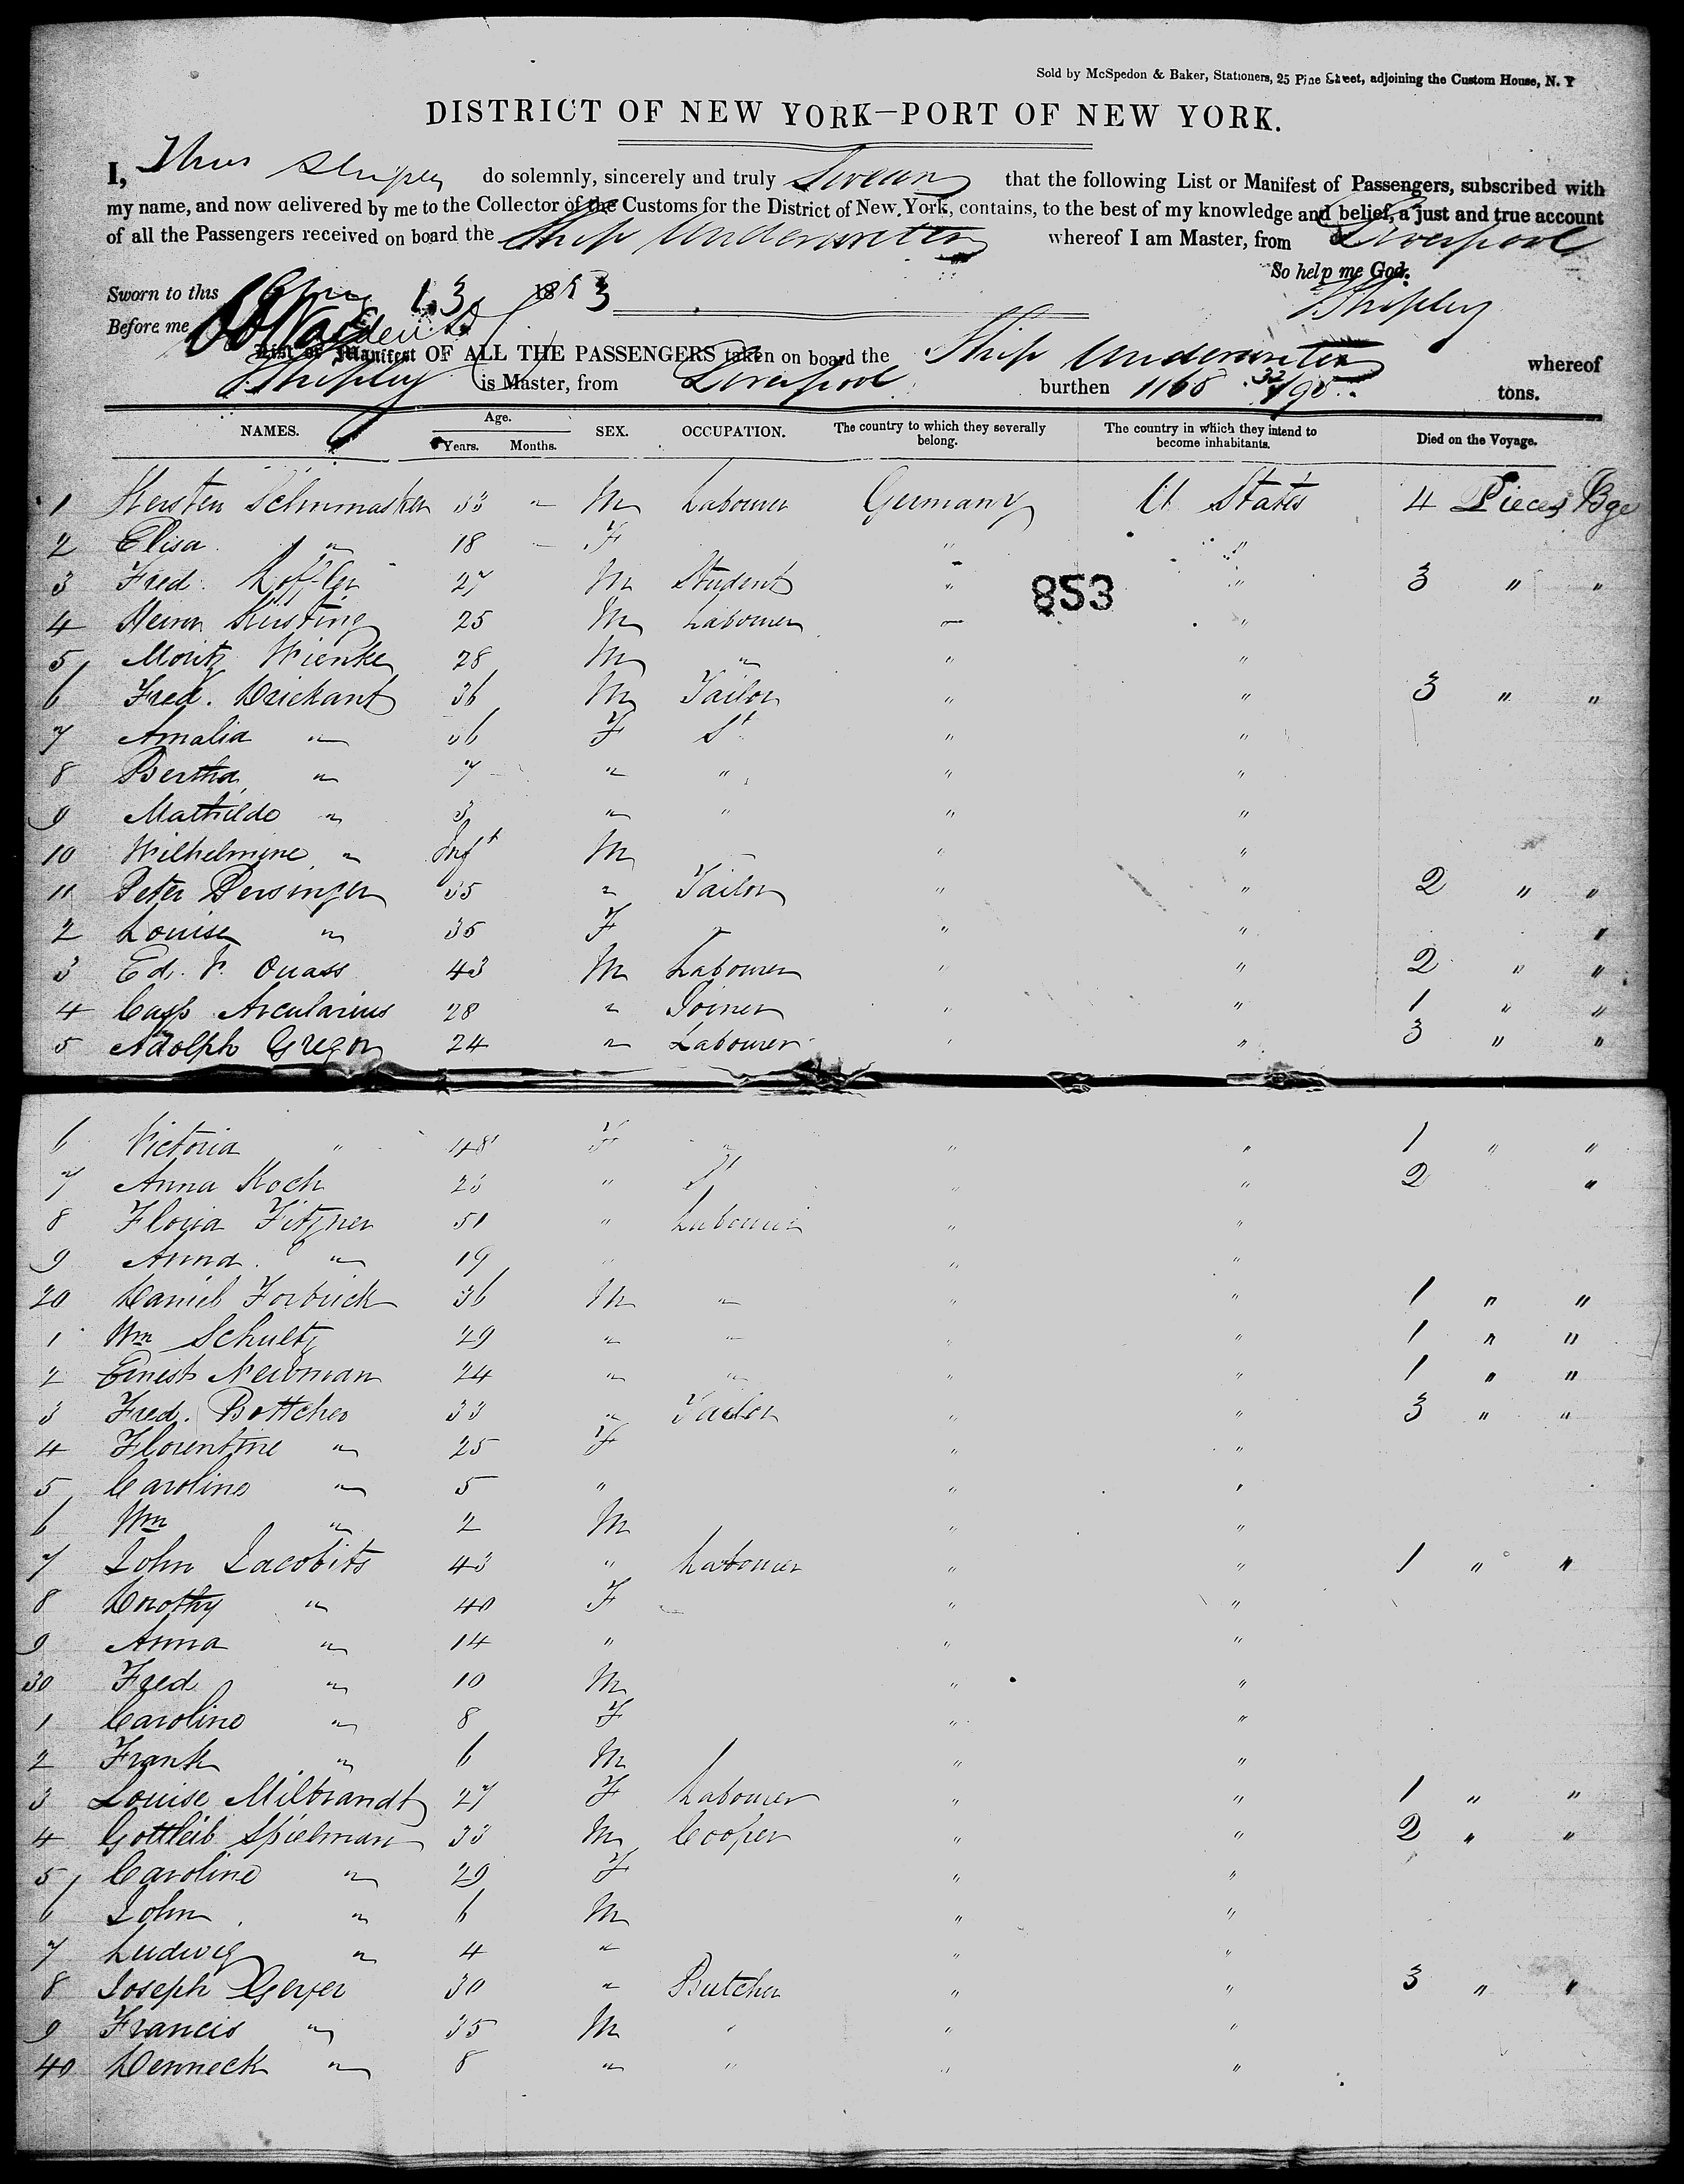 Sold by McSpedon & Baker, Stationers, 25 Pine Street, adjoining the Custom House, N. Y
DISTRICT OF NEW YORK—PORT OF NEW YORK.
I, Thos Shipley do solemnly, sincerely and truly Swear that the following List or Manifest of Passengers, subscribed with
my name, and now delivered by me to the Collector of the Customs for the District of New York, contains, to the best of my knowledge and belief, a just and true account
of all the Passengers received on board the Ship Underwriter whereof I am Master, from Liverpool
So help me God.
Sworn to this 13 1853 Shipley
Before me
List or Manifest OF ALL THE PASSENGERS taken on board the Ship Underwriter whereof
Shipley is Master, from Liverpool burthen 1168 32/95 tons.
NAMES. Age. Years. Months. SEX. OCCUPATION. The country to which they severally belong. The country in which they intend to become inhabitants. Died on the Voyage.
1 Kersten Schumasker 33 " M Labourer Germany U States 4 Pieces Bge
2 Elisa " 18 F " "
3 Fred. Loffler 27 M Student " " 3 " "
853
4 Heinr Kusting 25 M Labourer " "
5 Moritz Wienke 28 M " " "
6 Fred. Drickant 36 M Tailor " " 3 " "
7 Amalia " 36 F St " "
8 Bertha " 7 " " " "
9 Mathilde " 3 " " " "
10 Wilhelmine " Inft M " "
11 Peter Persinger 35 " Tailor " " 2 " "
2 Louise " 35 F " " "
3 Ed. Quass 43 M Labourer " " 2 " "
4 Casp Arcularius 28 " Joiner " " 1 " "
5 Adolph Gregor 24 " Labourer " " 3 " "
6 Victoria " 48 F " " " 1 " "
7 Anna Koch 23 " St " " 2 "
8 Floria Fitzner 51 " Labourer " "
9 Anna " 19 " " "
20 Daniel Forbrick 36 M " " " 1 " "
1 Wm Schultz 29 " " " " 1 " "
2 Ernest Neibman 24 " " " " 1 " "
3 Fred. Bottcher 33 " Tailor " " 3 " "
4 Florentine " 25 F " "
5 Caroline " 5 " " "
6 Wm " 2 M " "
7 John Jacobits 43 " Labourer " " 1 " "
8 Dorothy " 40 F " "
9 Anna " 14 " " "
30 Fred " 10 M " "
1 Caroline " 8 F " "
2 Frank " 6 M " "
3 Louise Milbrandt 27 F Labourer " " 1 " "
4 Gottleib Spielman 33 M Cooper " " 2 " "
5 Caroline " 29 F " "
6 John " 6 M " "
7 Ludwig " 4 " " "
8 Joseph Geyer 30 " Butcher " " 3 " "
9 Francis " 35 M " " "
40 Denneck " 8 " " " "